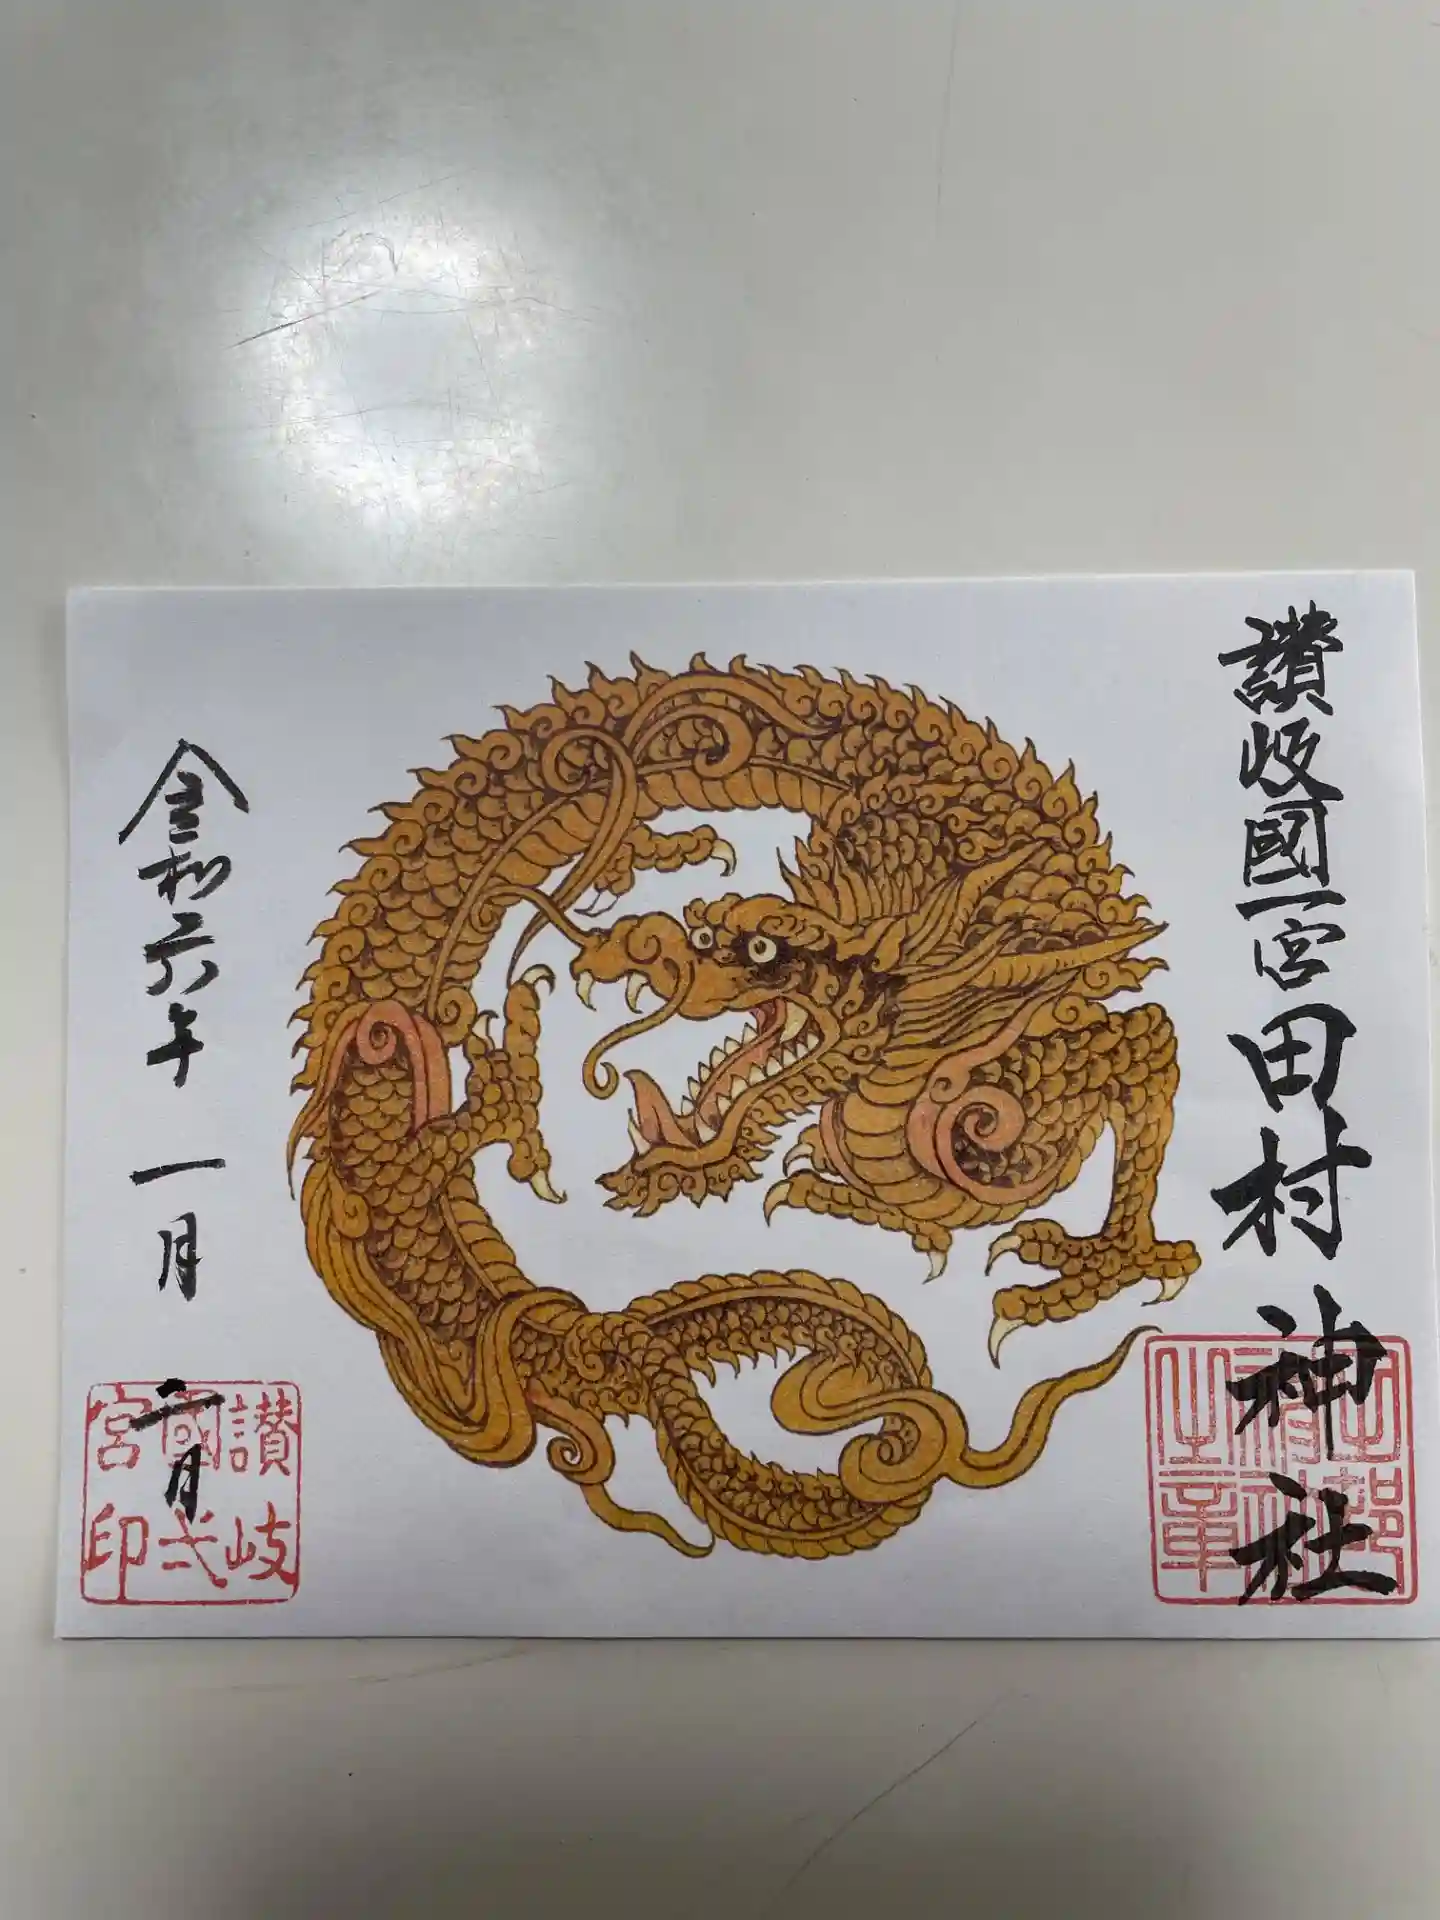 讃岐國一宮田村神社
令和六年一月二日
讃岐
國弌
宮印